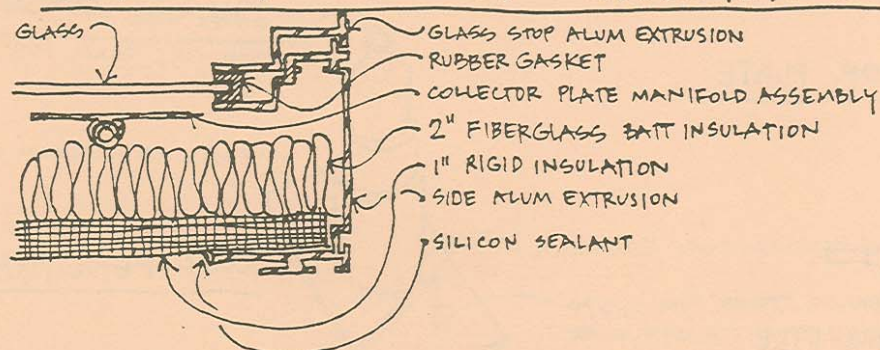 GLASS
GLASS STOP ALUM EXTRUSION
RUBBER GASKET
COLLECTOR PLATE MANIFOLD ASSEMBLY
2" FIBERGLASS BATT INSULATION
1" RIGID INSULATION
SIDE ALUM EXTRUSION
SILICON SEALANT